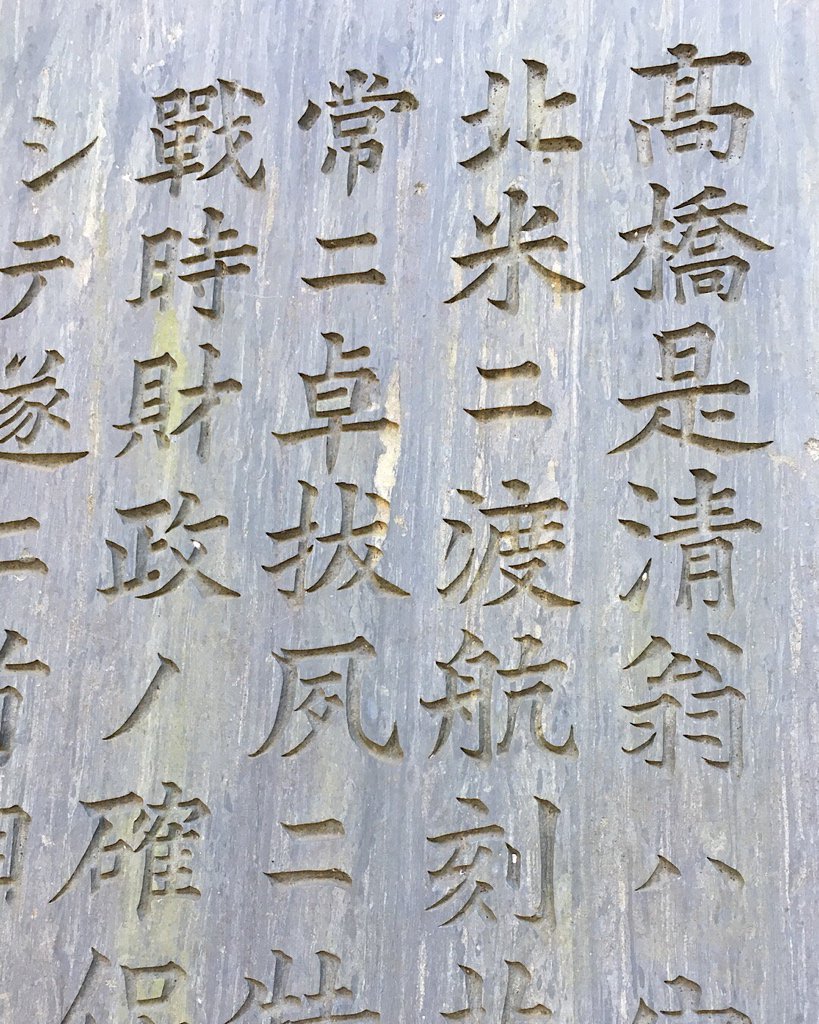 髙橋是清翁ハ
北米ニ渡航刻苦
常ニ卓拔夙ニ
戰時財政ノ確保
シテ遂ニ